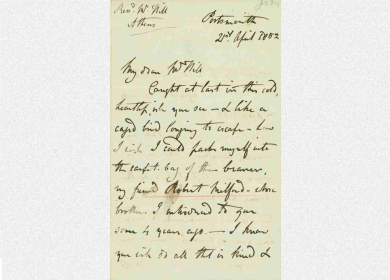 Revd. Mr Hill
Athens
Portsmouth
21st April 1852
My dear Mr Hill
Caught at last in this cold
you see - & like a
caged bird longing to escape - how
I wish I could pack myself into
the carpet bag of the bearer,
my friend Robert Milford - whose
brother I introduced to your
some 4 years ago. - I know
you will do all that is kind &